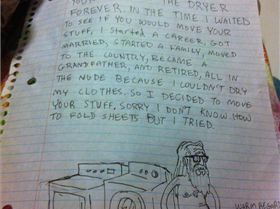 THE DRYER
FOREVER. IN THE TIME I WAITED
TO SEE IF YOU WOULD MOVE YOUR
STUFF, I STARTED A CAREER, GOT
MARRIED, STARTED A FAMILY, MOVED
TO THE COUNTRY, BECAME A
GRANDFATHER, AND RETIRED, ALL IN
THE NUDE BECAUSE I COULDN'T DRY
MY CLOTHES. SO I DECIDED TO MOVE
YOUR STUFF. SORRY I DON'T KNOW HOW
TO FOLD SHEETS BUT I TRIED.
WARM REGAR